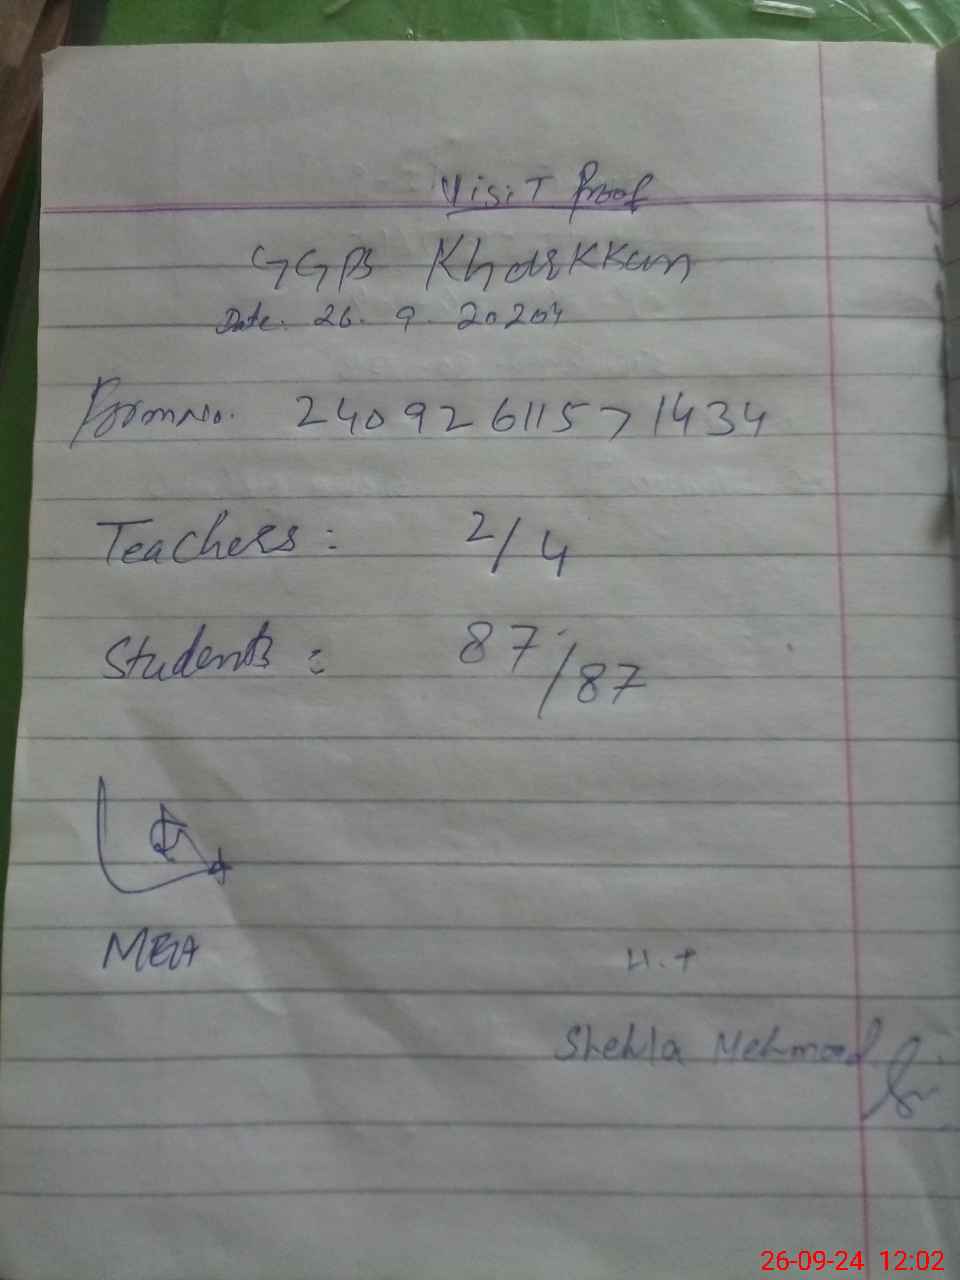 Visit Proof
GGPS Kharkkan
Date: 26. 9. 2024
Form No. 24092611571434
Teachers: 2/4
Students: 87/87
MEA
H.T
Shehla Mehmood
26-09-24 12:02